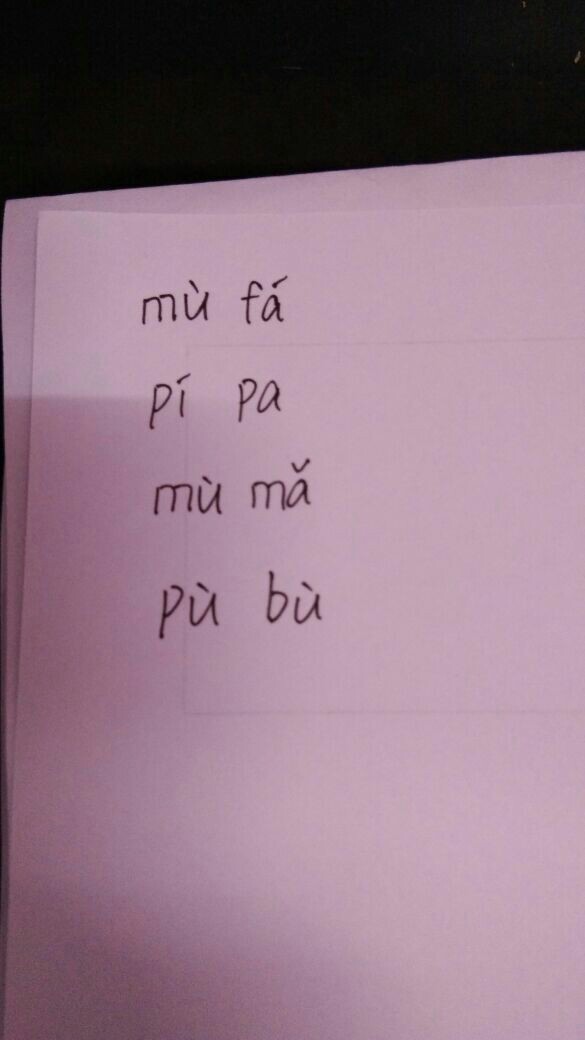 mù fá
pí pa
mù mǎ
pù bù